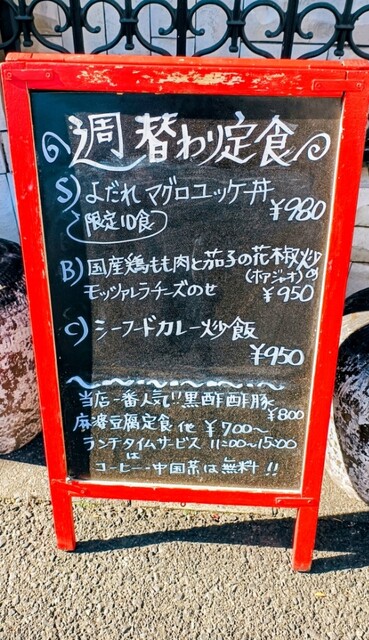 週替わり定食
S) よだれマグロユッケ丼
限定10食
¥980
B) 国産鶏もも肉と茄子の花椒炒め
(ホアジャオ)
モッツァレラチーズのせ ¥950
C) シーフードカレー炒飯
¥950
当店一番人気!! 黒酢酢豚
¥800
麻婆豆腐定食 他 ¥700〜
ランチタイムサービス 11:00〜15:00
は
コーヒー・中国茶は無料!!